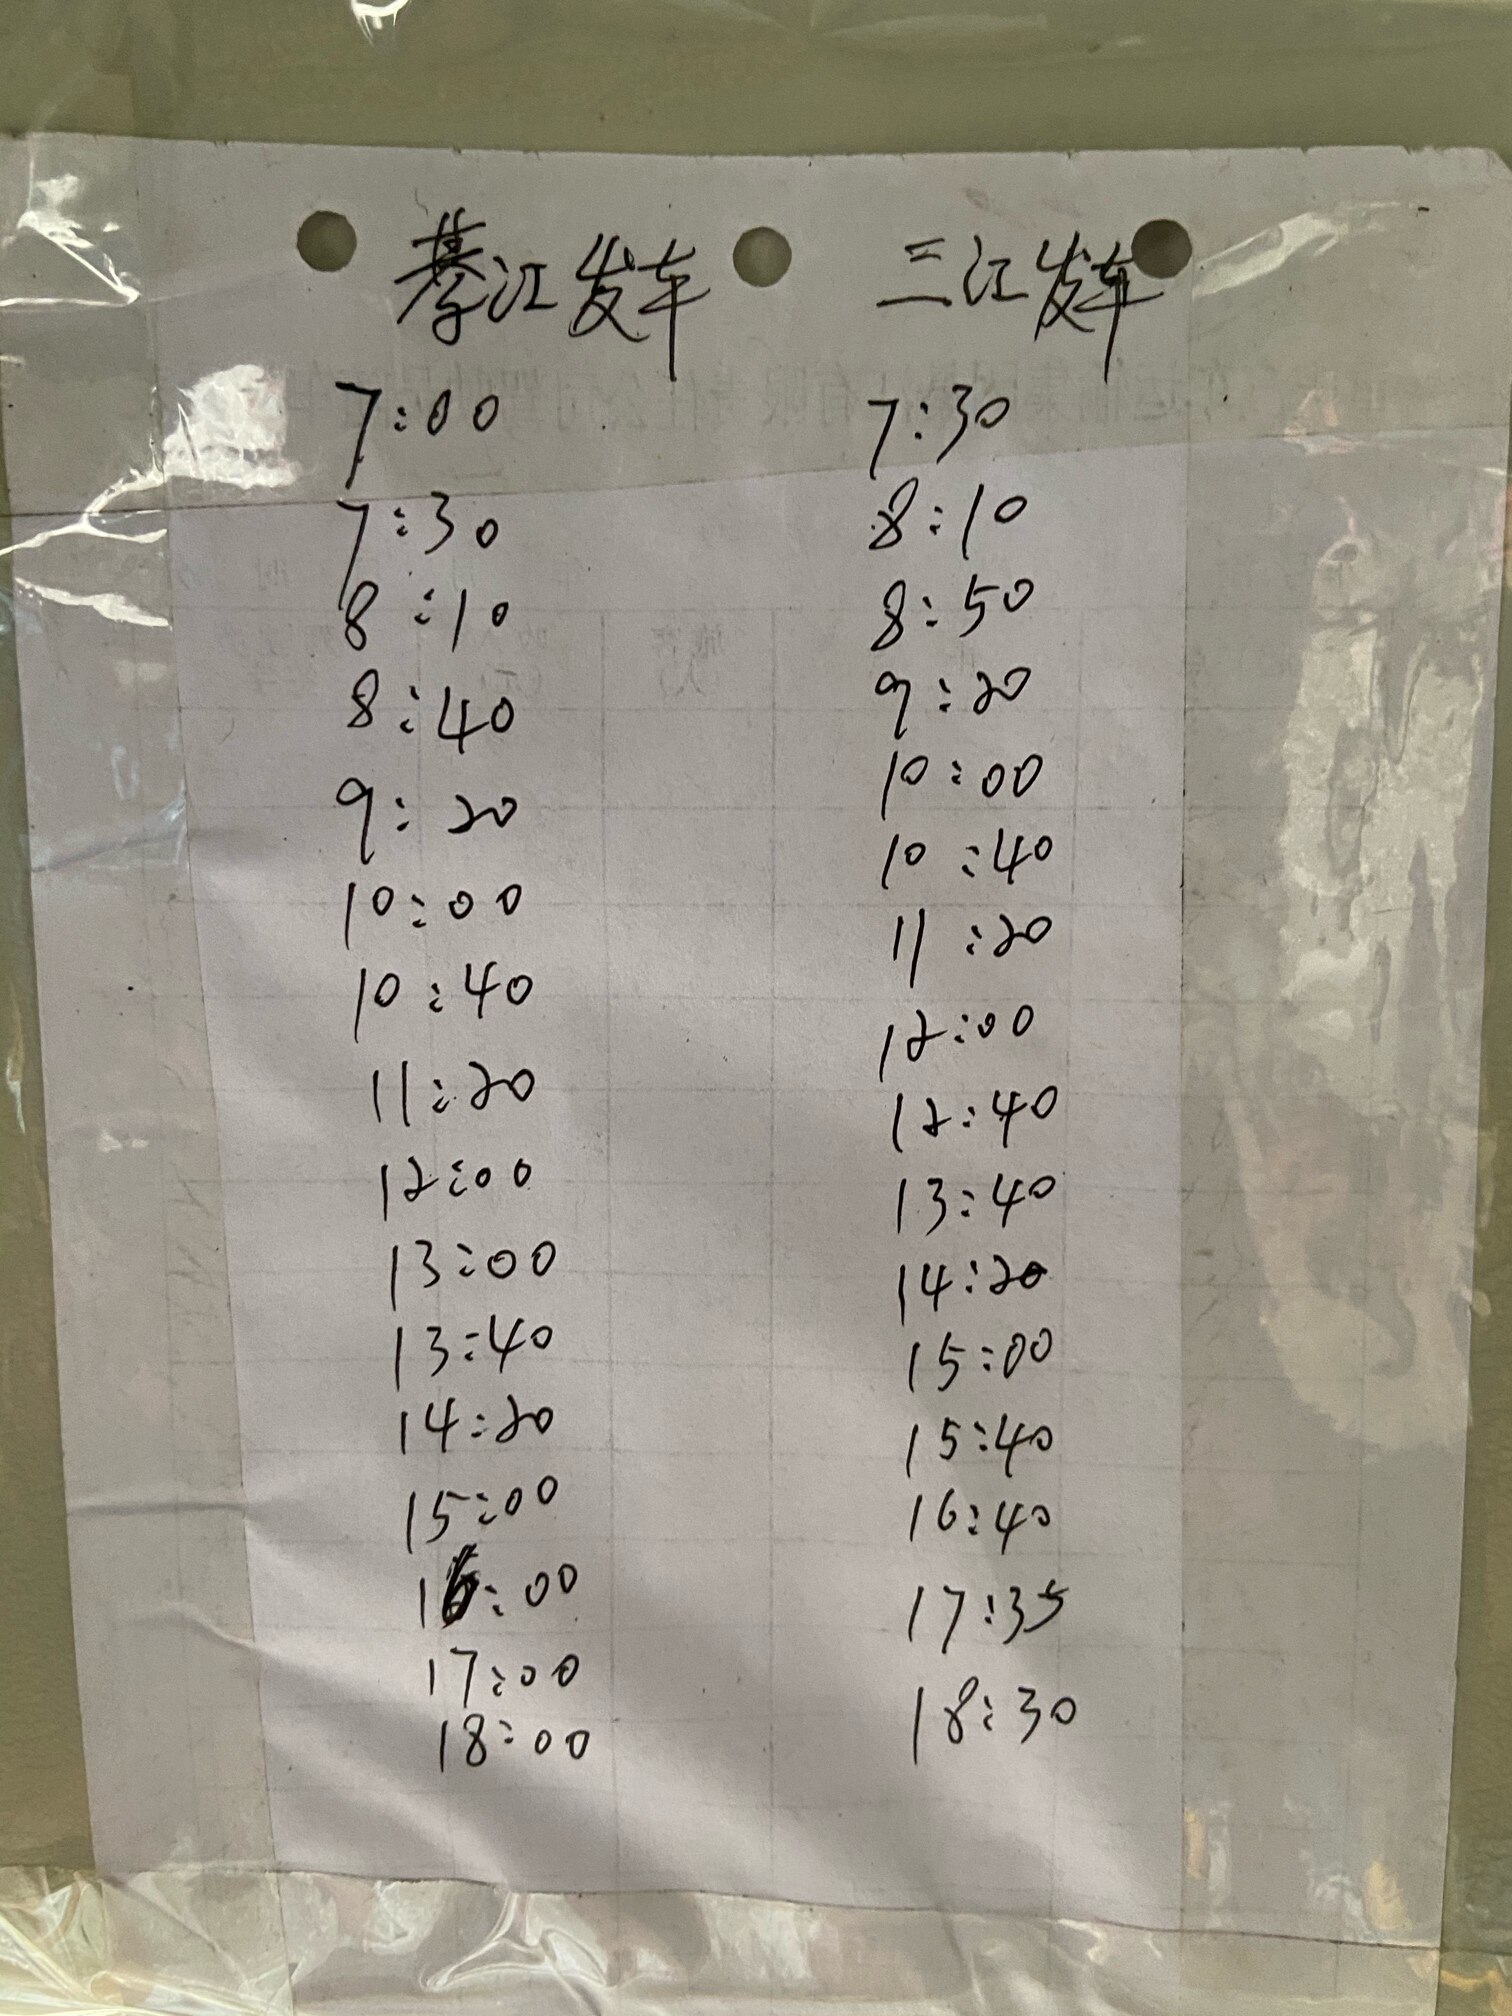 綦江发车 三江发车
7:00 7:30
7:30 8:10
8:10 8:50
8:40 9:20
9:20 10:00
10:00 10:40
10:40 11:20
11:20 12:00
12:00 12:40
13:00 13:40
13:40 14:20
14:20 15:00
15:00 15:40
16:00 16:40
17:00 17:35
18:00 18:30